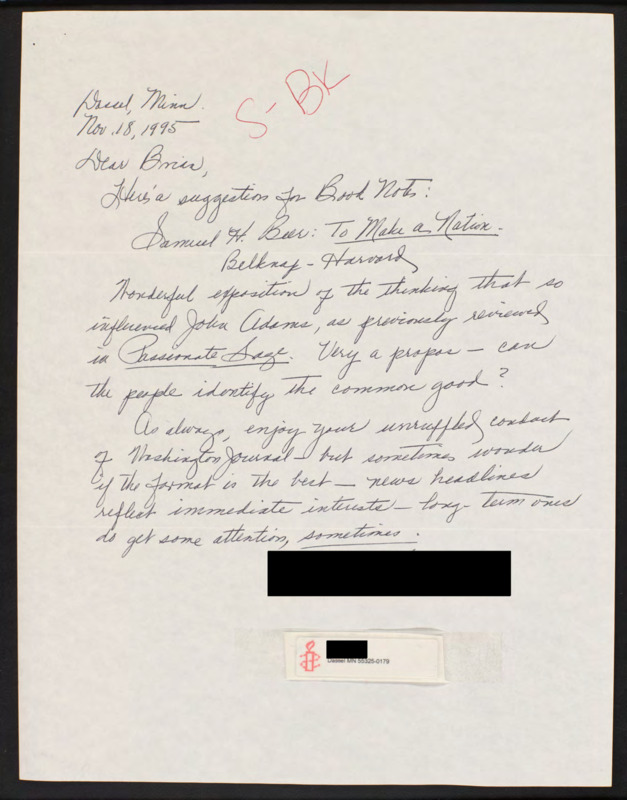 S-BK
Dassel, Minn.
Nov. 18, 1995
Dear Brian,
Here's a suggestion for Book Notes:
Samuel H. Beer: To Make a Nation.
Belknap - Harvard
Wonderful exposition of the thinking that so
influenced John Adams, as previously reviewed
in Passionate Sage. Very a propos - can
the people identify the common good?
As always, enjoy your unruffled conduct
of Washington Journal - but sometimes wonder
if the format is the best - news headlines
reflect immediate interests - long-term ones
do get some attention, sometimes.
Dassel MN 55325-0179